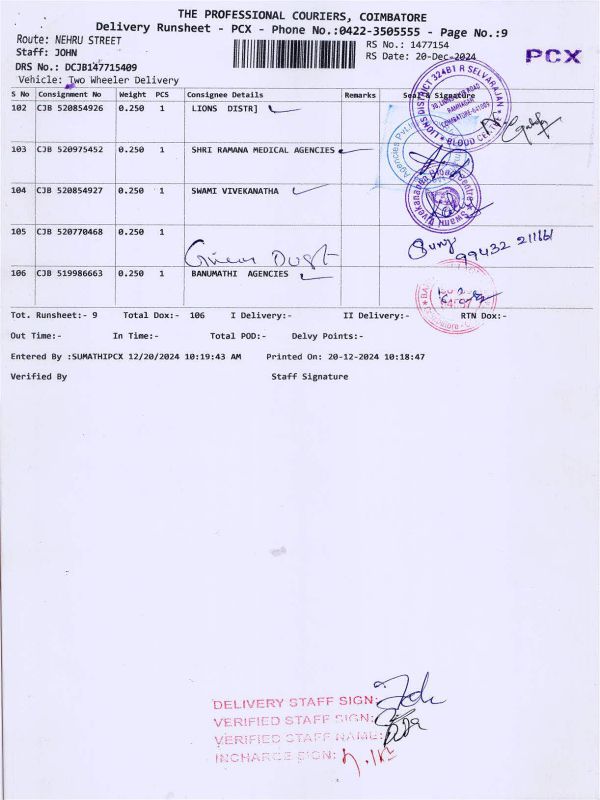 THE PROFESSIONAL COURIERS, COIMBATORE
Delivery Runsheet - PCX - Phone No.:0422-3505555 - Page No.:9
Route: NEHRU STREET
RS No.: 1477154
Staff: JOHN
RS Date: 20-Dec-2024
PCX
DRS No.: DCJB147715409
Vehicle: Two Wheeler Delivery
S No Consignment No Weight PCS Consignee Details Remarks Seal & Signature
102 CJB 520854926 0.250 1 LIONS DISTR]
LIONS DISTRICT 324B1 R SELVARAJAN
RAMNAGAR
COIMBATORE-641009
BLOOD CENTRE
103 CJB 520975452 0.250 1 SHRI RAMANA MEDICAL AGENCIES
Agencies
104 CJB 520854927 0.250 1 SWAMI VIVEKANATHA
Swami Vivekananda Blood Centre
105 CJB 520770468 0.250 1
99432 211161
106 CJB 519986663 0.250 1 BANUMATHI AGENCIES
Tot. Runsheet:- 9 Total Dox:- 106 I Delivery:- II Delivery:- RTN Dox:-
Out Time:- In Time:- Total POD:- Delvy Points:-
Entered By :SUMATHIPCX 12/20/2024 10:19:43 AM Printed On: 20-12-2024 10:18:47
Verified By Staff Signature
DELIVERY STAFF SIGN:
VERIFIED STAFF SIGN:
VERIFIED STAFF NAME:
INCHARGE SIGN: